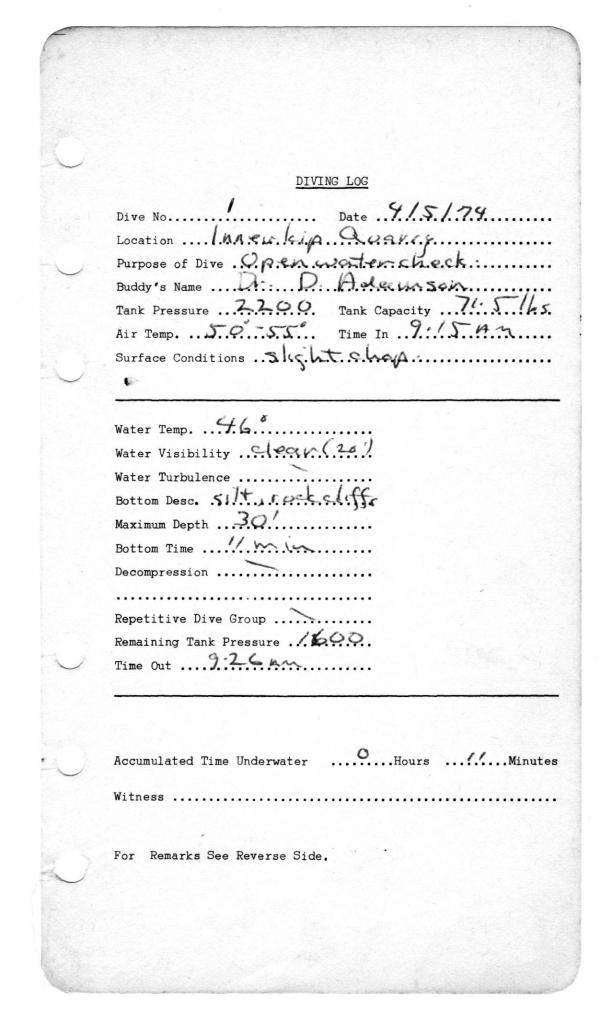 DIVING LOG
Dive No. 1 Date 4/5/74
Location Innerkip Quarry
Purpose of Dive Open water check
Buddy's Name Dr. D. Adamson
Tank Pressure 2200 Tank Capacity 71.5 lbs.
Air Temp. 50°-55° Time In 9:15 AM
Surface Conditions slight chop
Water Temp. 46°
Water Visibility clear (20')
Water Turbulence —
Bottom Desc. silt, rock cliffs
Maximum Depth 30'
Bottom Time 11 min
Decompression —
Repetitive Dive Group —
Remaining Tank Pressure 1600
Time Out 9:26 AM
Accumulated Time Underwater 0 Hours 11 Minutes
Witness
For Remarks See Reverse Side.